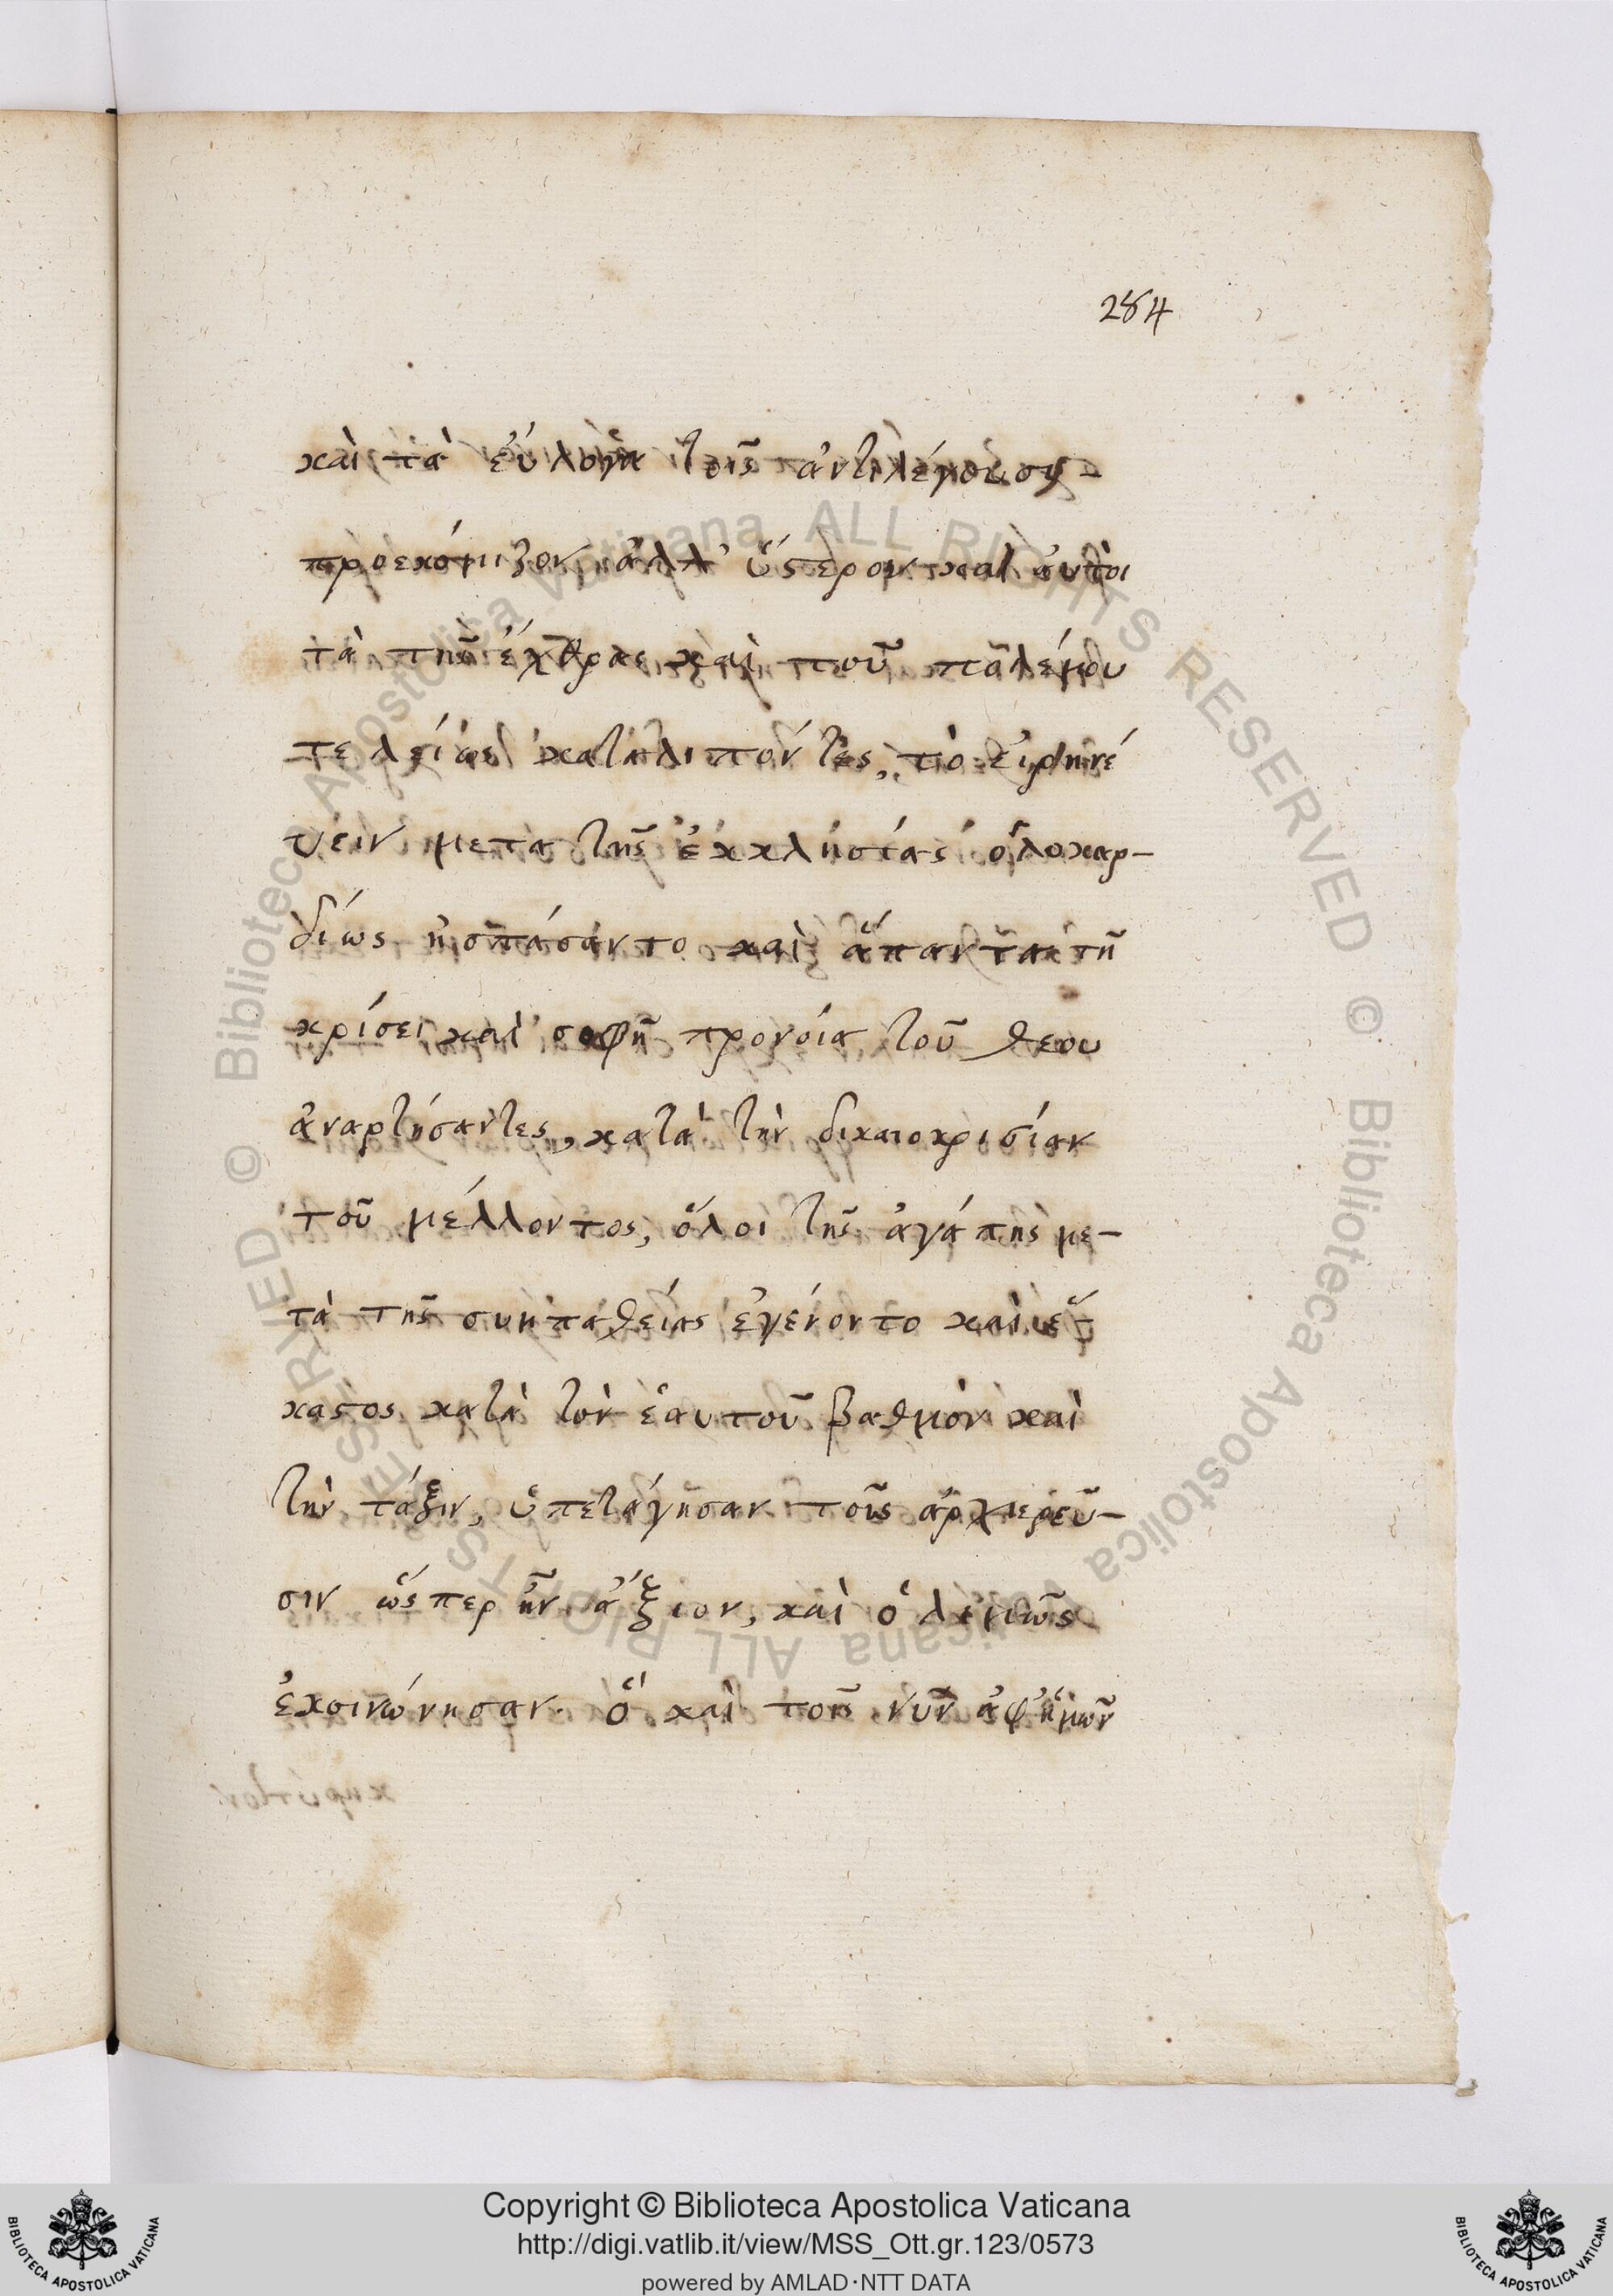 284
καὶ τὰ ἐύλογα τοῖς ἀντιλέγουσι
προεκόμιζον, ἀλλ' ὕστερον καὶ ἀυτοὶ
τὰ τῆς ἔχθρας καὶ τοῦ πολέμου
τελείως καταλιπόντες, τὸ ἐιρηνέ
υειν μετα τῆς ἐκκλησίας ὁλοκαρ-
δίως ἠσπάσαντο καὶ ἅπαντα τῆ
κρίσει καὶ σοφῆ προνοία τοῦ θεου
ἀναρτήσαντες, κατὰ τὴν δικαιοκρισίαν
τοῦ μέλλοντος, ὅλοι τῆς ἀγάπης με-
τὰ τῆς συμπαθείας ἐγένοντο καὶ ἕ-
καστος κατὰ τὸν ἑαυτοῦ βαθμὸν καὶ
τὴν τάξιν, ὑπετάγησαν τοῖς ἀρχιερεῦ-
σιν ὥσπερ ἦν ἄξιον, καὶ
ἐκοινώνησαν. ὃ καὶ τοῖς νῦν ἀφ' ἡμῶν
Copyright © Biblioteca Apostolica Vaticana
http://digi.vatlib.it/view/MSS_Ott.gr.123/0573
powered by AMLAD·NTT DATA
BIBLIOTECA APOSTOLICA VATICANA
BIBLIOTECA APOSTOLICA VATICANA
© Biblioteca Apostolica Vaticana ALL RIGHTS RESERVED
© Biblioteca Apostolica Vaticana ALL RIGHTS RESERVED